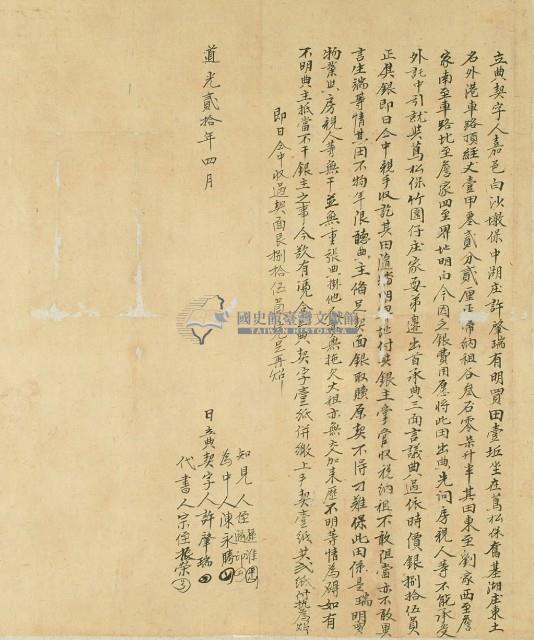 立典契字人嘉邑白沙墩保中湖庄許肇瑞有明買田壹坵坐在蔦松保舊基湖庄東土
名外港車路頂經丈壹甲零貳分貳厘正帶納租谷叁石零柒升半其田東至劉家西至詹
家南至車路北至詹家四至界址明白今因乏銀費用愿將此田出典先问房親人等不能承受
外託中引就與蔦松保竹圍仔庄家 弟邊出首承典三面言議典過依時價銀捌拾伍員
正其銀即日仝中親手收訖其田隨踏明界址付與銀主掌管收稅納租不敢阻當亦不敢異
言生端等情其田不拘年限聽典主俻足契面銀取贖原契不得刁難保此田係是瑞明買
物業與房親人等無干並無重張典掛他 無拖欠大租亦無交加來歷不明等情為碍如有
不明典主抵當不干銀主之事今欲有憑合立典契字壹紙併繳上手契壹紙共貳纸付执為炤
即日仝中收過契面艮捌拾伍員完足再炤
知見人侄
為中人陳永勝
日立典契字人許肇瑞
代書人宗侄振榮
道光貳拾年四月
國史館臺灣文獻館
TAIWAN HISTORICA